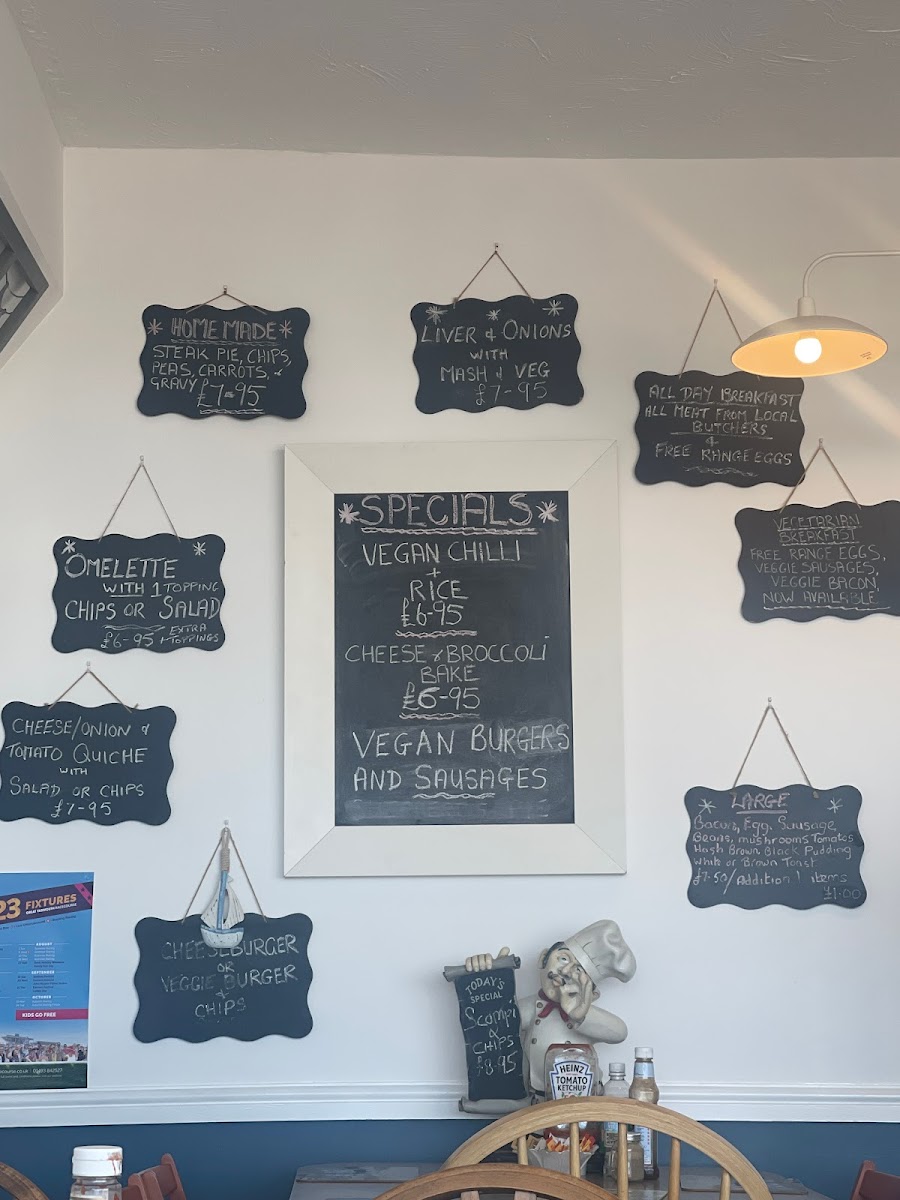 * HOME MADE *
STEAK PIE, CHIPS,
PEAS, CARROTS, &
GRAVY £7-95
LIVER & ONIONS
WITH
MASH & VEG
£7-95
ALL DAY BREAKFAST
ALL MEAT FROM LOCAL
BUTCHERS
&
FREE RANGE EGGS
VEGETARIAN
BREAKFAST
FREE RANGE EGGS,
VEGGIE SAUSAGES,
VEGGIE BACON,
NOW AVAILABLE
OMELETTE
WITH 1 TOPPING
CHIPS OR SALAD
£6-95 EXTRA
TOPPINGS
*SPECIALS*
VEGAN CHILLI
+
RICE
£6-95
CHEESE & BROCCOLI
BAKE
£6-95
VEGAN BURGERS
AND SAUSAGES
CHEESE/ONION &
TOMATO QUICHE
WITH
SALAD OR CHIPS
£7-95
* LARGE *
Bacon, Egg, Sausage
Beans, mushrooms Tomatoes
Hash Brown Black Pudding
White or Brown Toast
£7-50/Addition 1 items
£1.00
CHEESEBURGER
OR
VEGGIE BURGER
&
CHIPS
23 FIXTURES
AUGUST
SEPTEMBER
OCTOBER
KIDS GO FREE
TODAY'S
SPECIAL
Scampi
&
CHIPS
£8.95
HEINZ
TOMATO
KETCHUP